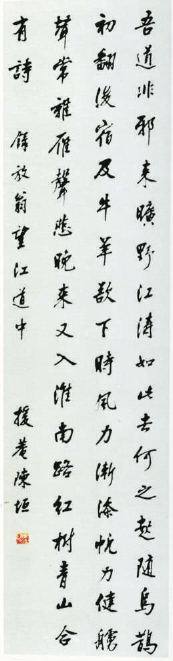 吾道非邪来曠野江濤如此去何之起随烏鵲
初翻後宿及牛羊欲下時風力漸添帆力健艣
聲常雜雁聲悲晚来又入淮南路紅樹青山合
有詩 錄放翁望江道中 援菴陳垣